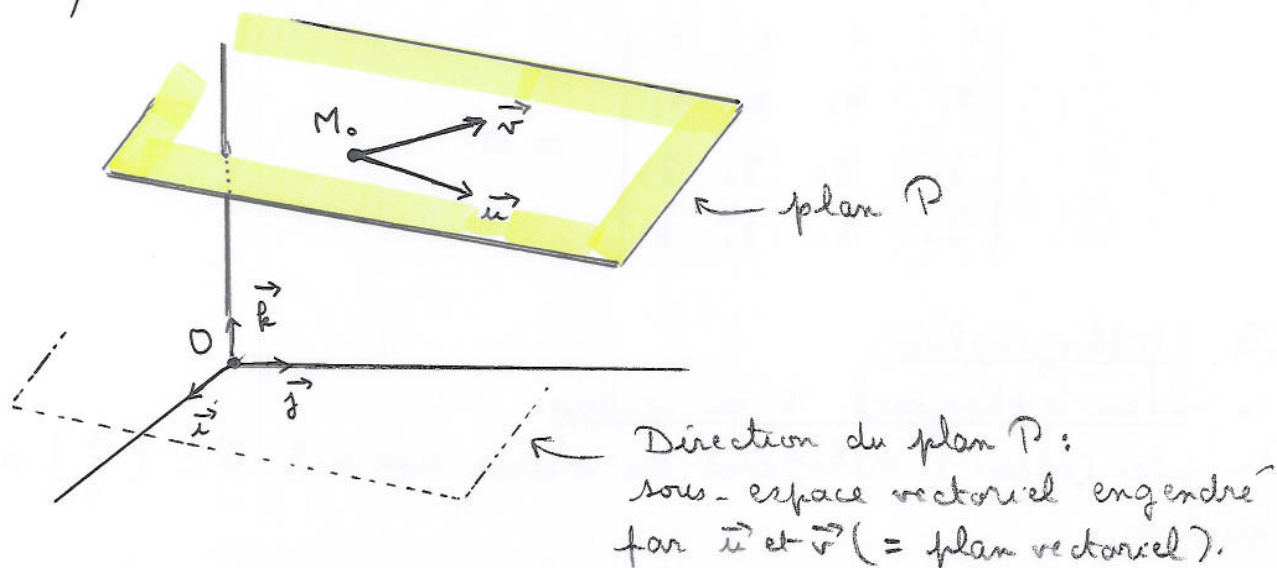 M₀
v⃗
u⃗
← plan P
k⃗
O
j⃗
i⃗
← Direction du plan P :
sous-espace vectoriel engendré
par u⃗ et v⃗ (= plan vectoriel).